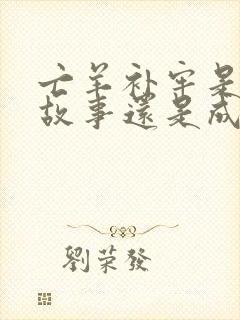 亡羊补牢是
故事還是成
劉榮發